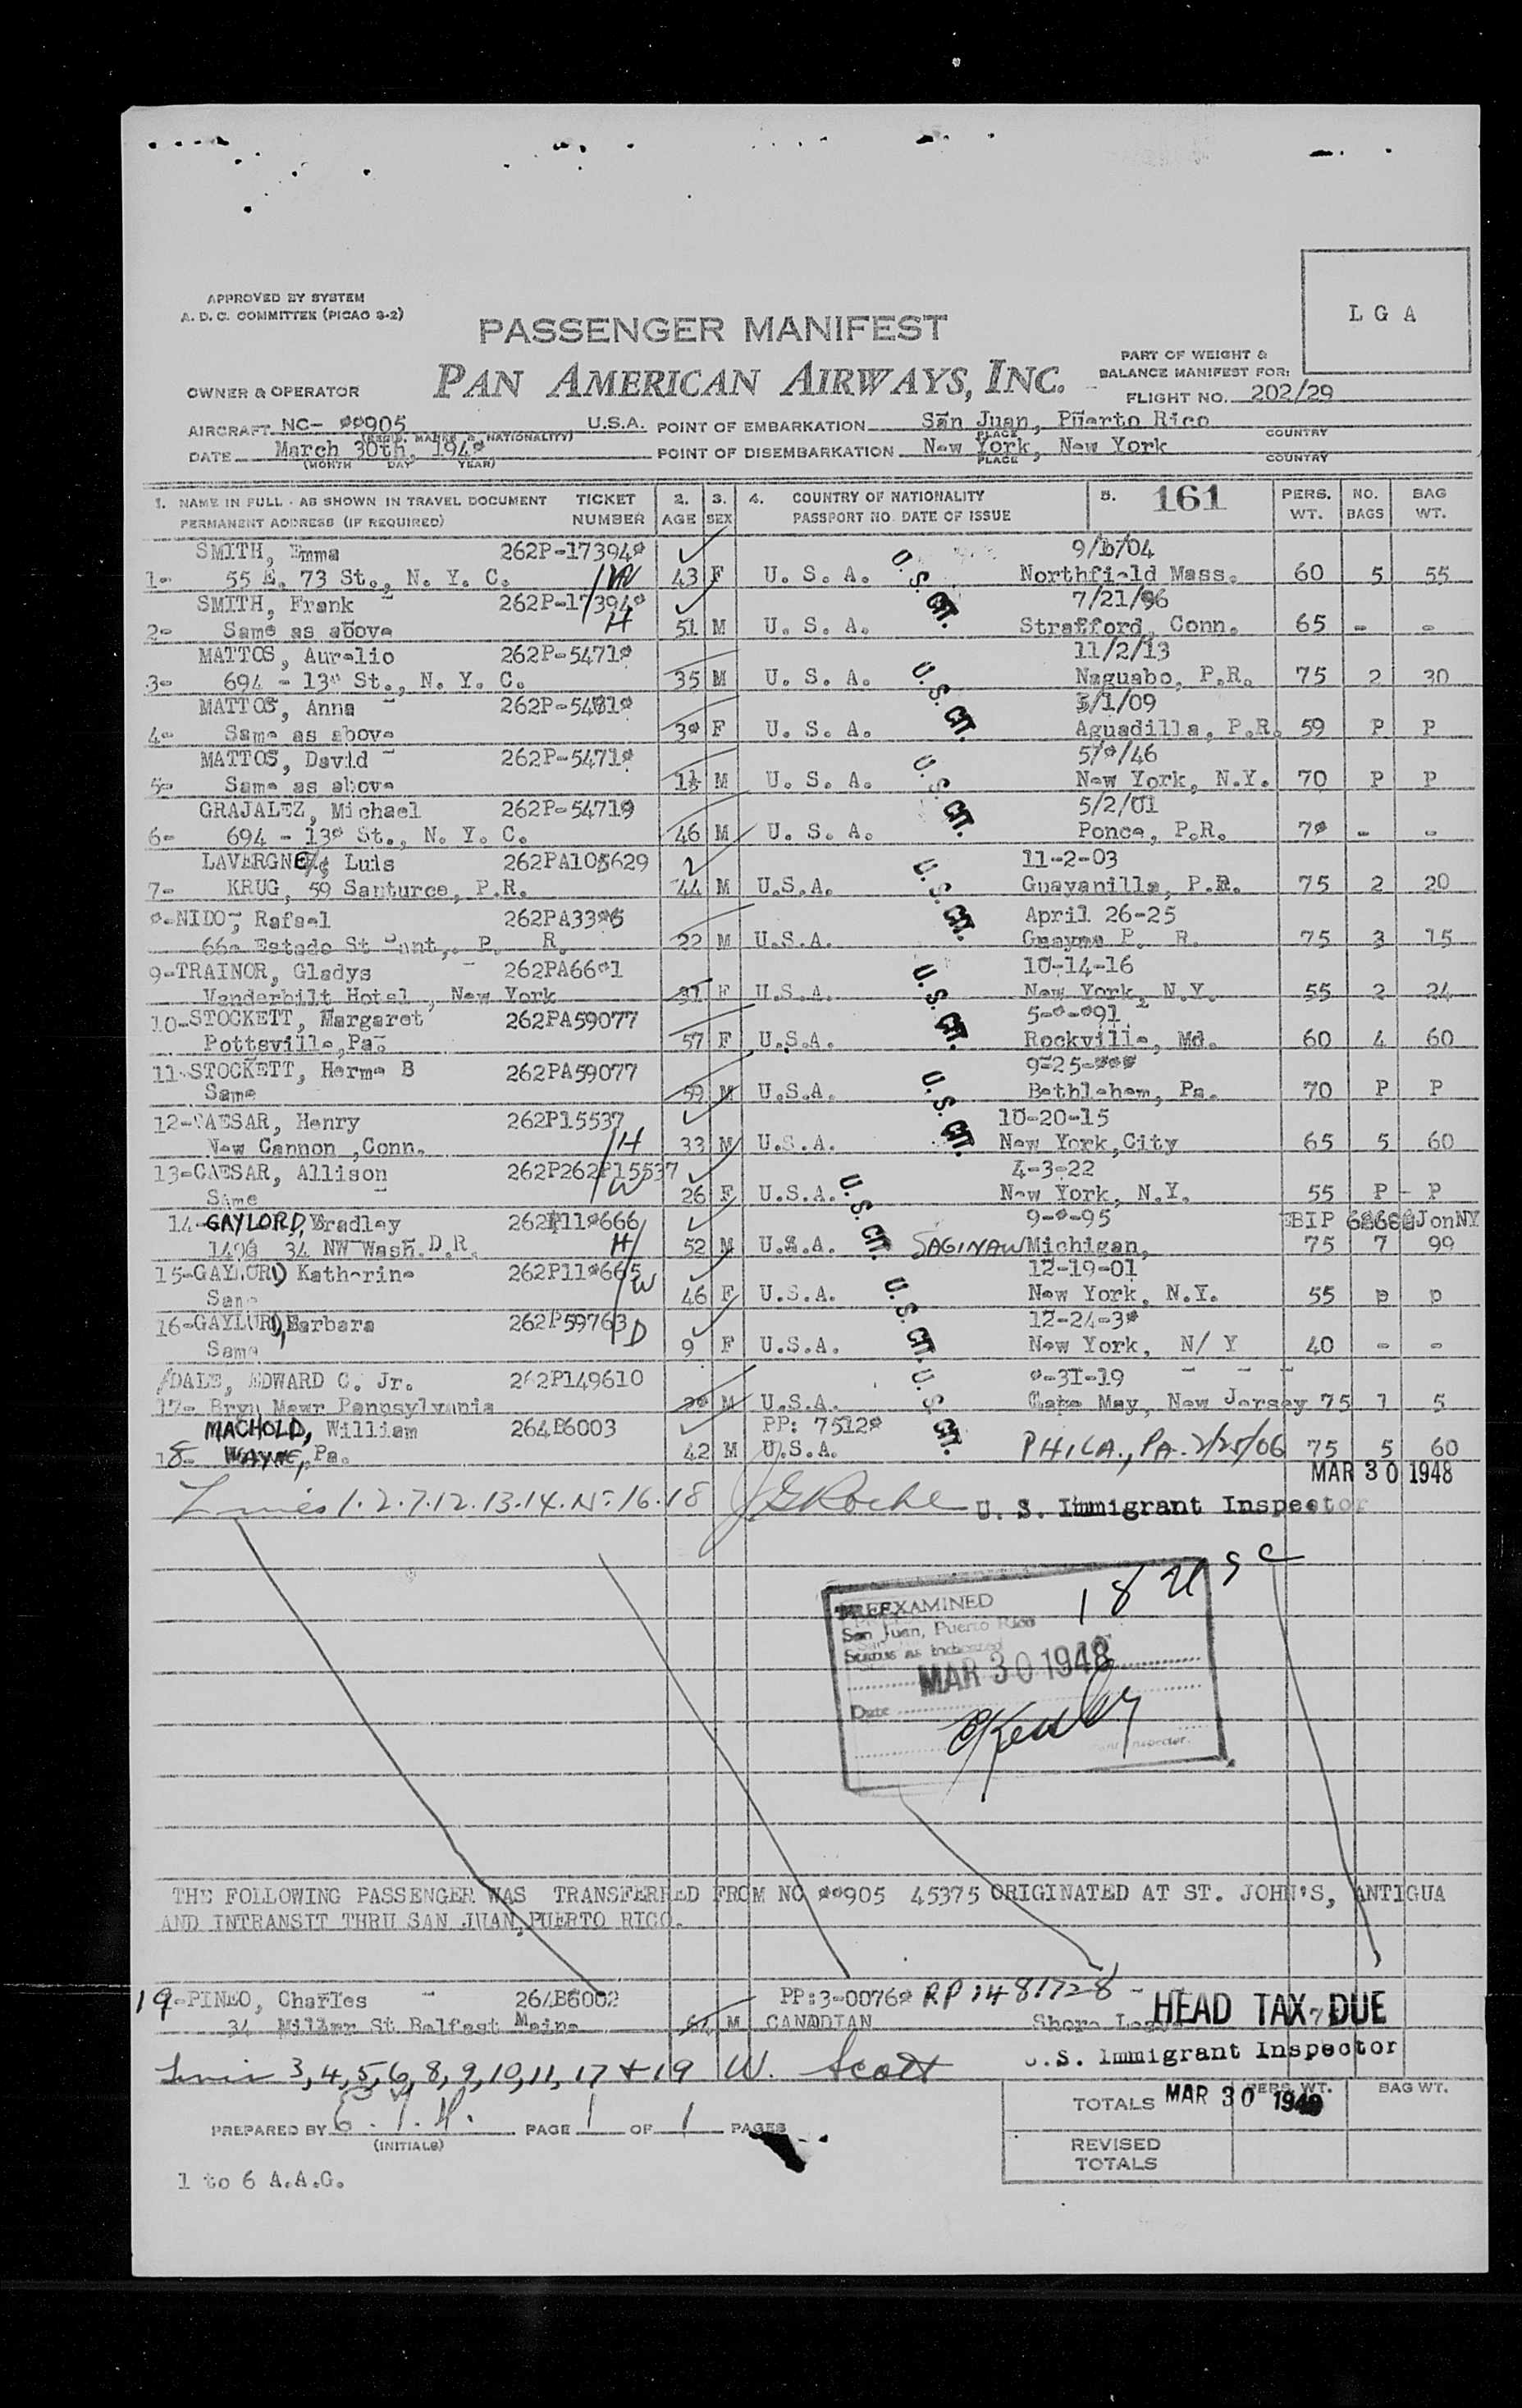 APPROVED BY SYSTEM
A. D. C. COMMITTEE (PICAO 3-2)
LGA
PASSENGER MANIFEST
PART OF WEIGHT &
BALANCE MANIFEST FOR:
OWNER & OPERATOR
PAN AMERICAN AIRWAYS, INC.
FLIGHT NO. 202/29
AIRCRAFT NC- 905 U.S.A. POINT OF EMBARKATION San Juan, Puerto Rico
(REGIS. MARKS & NATIONALITY) PLACE COUNTRY
DATE March 30th, POINT OF DISEMBARKATION New York, New York
(MONTH DAY YEAR) PLACE COUNTRY
1. NAME IN FULL - AS SHOWN IN TRAVEL DOCUMENT TICKET 2. 3. 4. COUNTRY OF NATIONALITY 5. 161 PERS. NO. BAG
PERMANENT ADDRESS (IF REQUIRED) NUMBER AGE SEX PASSPORT NO. DATE OF ISSUE WT. BAGS WT.
SMITH, Emma
1- 55 E. 73 St., N. Y. C. W 43 F U. S. A. U. S. CIT. Northfield Mass. 60 5 55
SMITH, Frank 7/21/96
2- Same as above H 51 M U. S. A. Stratford, Conn. 65 - -
MATTOS, Aurelio 11/2/13
3- 694 - St., N. Y. C. 35 M U. S. A. U. S. CIT. Naguabo, P.R. 75 2 30
MATTOS, Anna
4- Same as above F U. S. A. Aguadilla, P.R. 59 P P
MATTOS, David
5- Same as above M U. S. A. U. S. CIT. New York, N.Y. 70 P P
GRAJALEZ, Michael 262P-54719 5/2/01
6- 694 - St., N. Y. C. 46 M U. S. A. Ponce, P.R. - -
LAVERGNE, Luis 11-2-03
7- KRUG, 59 Santurce, P.R. 44 M U.S.A. U. S. CIT. Guayanilla, P.R. 75 2 20
NIDO, Rafael April 26-25
Estado St P. R. 22 M U.S.A. P. R. 75 3 15
9-TRAINOR, Gladys 10-14-16
Vanderbilt Hotel, New York 31 F U.S.A. U. S. CIT. New York, N.Y. 55 2 24
10-STOCKETT, Margaret 262PA59077
Pottsville,Pa. 57 F U.S.A. Rockville, Md. 60 4 60
11-STOCKETT, Herme B 262PA59077
Same 59 M U.S.A. U. S. CIT. Bethlehem, Pa. 70 P P
12-CAESAR, Henry 262P15537 10-20-15
New Cannon ,Conn. H 33 M U.S.A. New York,City 65 5 60
13-CAESAR, Allison 262P262P15537 4-3-22
Same W 26 F U.S.A. U. S. CIT. New York, N.Y. 55 P - P
14-GAYLORD, Bradley
34 NW Wash. D.R. H 52 M U.S.A. SAGINAW Michigan, 75 7 99
15-GAYLORD Katherine 12-19-01
Same W 46 F U.S.A. U. S. CIT. New York, N.Y. 55 p p
16-GAYLORD, Barbara 262P59763
Same D 9 F U.S.A. New York, N/ Y 40 - -
DALE, EDWARD C. Jr. 262P149610
17- Bryn Mawr Pennsylvania M U.S.A. U. S. CIT. Cape May, New Jersey 75 1 5
MACHOLD, William 264B6003
18- WAYNE, Pa. 42 M U.S.A. PHILA., PA. 2/25/06 75 5 60
MAR 30 1948
Lines 1.2.7.12.13.14.15.16.18 JG Roche U. S. Immigrant Inspector
18 USC
PREEXAMINED
San Juan, Puerto Rico
Status as indicated
MAR 30 1948
Date
Inspector.
THE FOLLOWING PASSENGER WAS TRANSFERRED FROM NC 905 45375 ORIGINATED AT ST. JOHN'S, ANTIGUA
AND INTRANSIT THRU SAN JUAN, PUERTO RICO.
19-PINEO, Charles 264B6002 RP:1481728
34 Miller St Belfast Maine M CANADIAN HEAD TAX DUE
U.S. Immigrant Inspector
Lines 3,4,5,6,8,9,10,11,17 + 19 W. Scott
TOTALS PERS. WT. BAG WT.
MAR 30
PREPARED BY PAGE 1 OF 1 PAGES
(INITIALS)
REVISED
TOTALS
1 to 6 A.A.G.